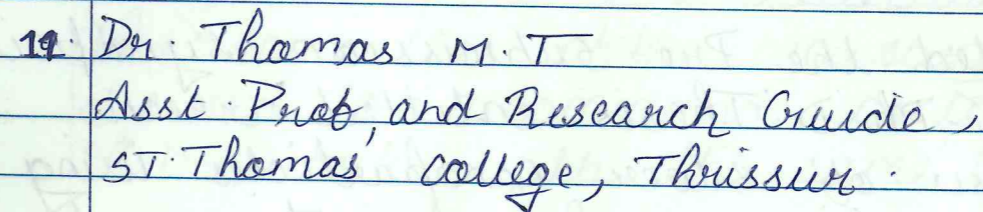 11. Dr. Thomas M.T
Asst. Prof, and Research Guide,
ST. Thomas' college, Thrissur.